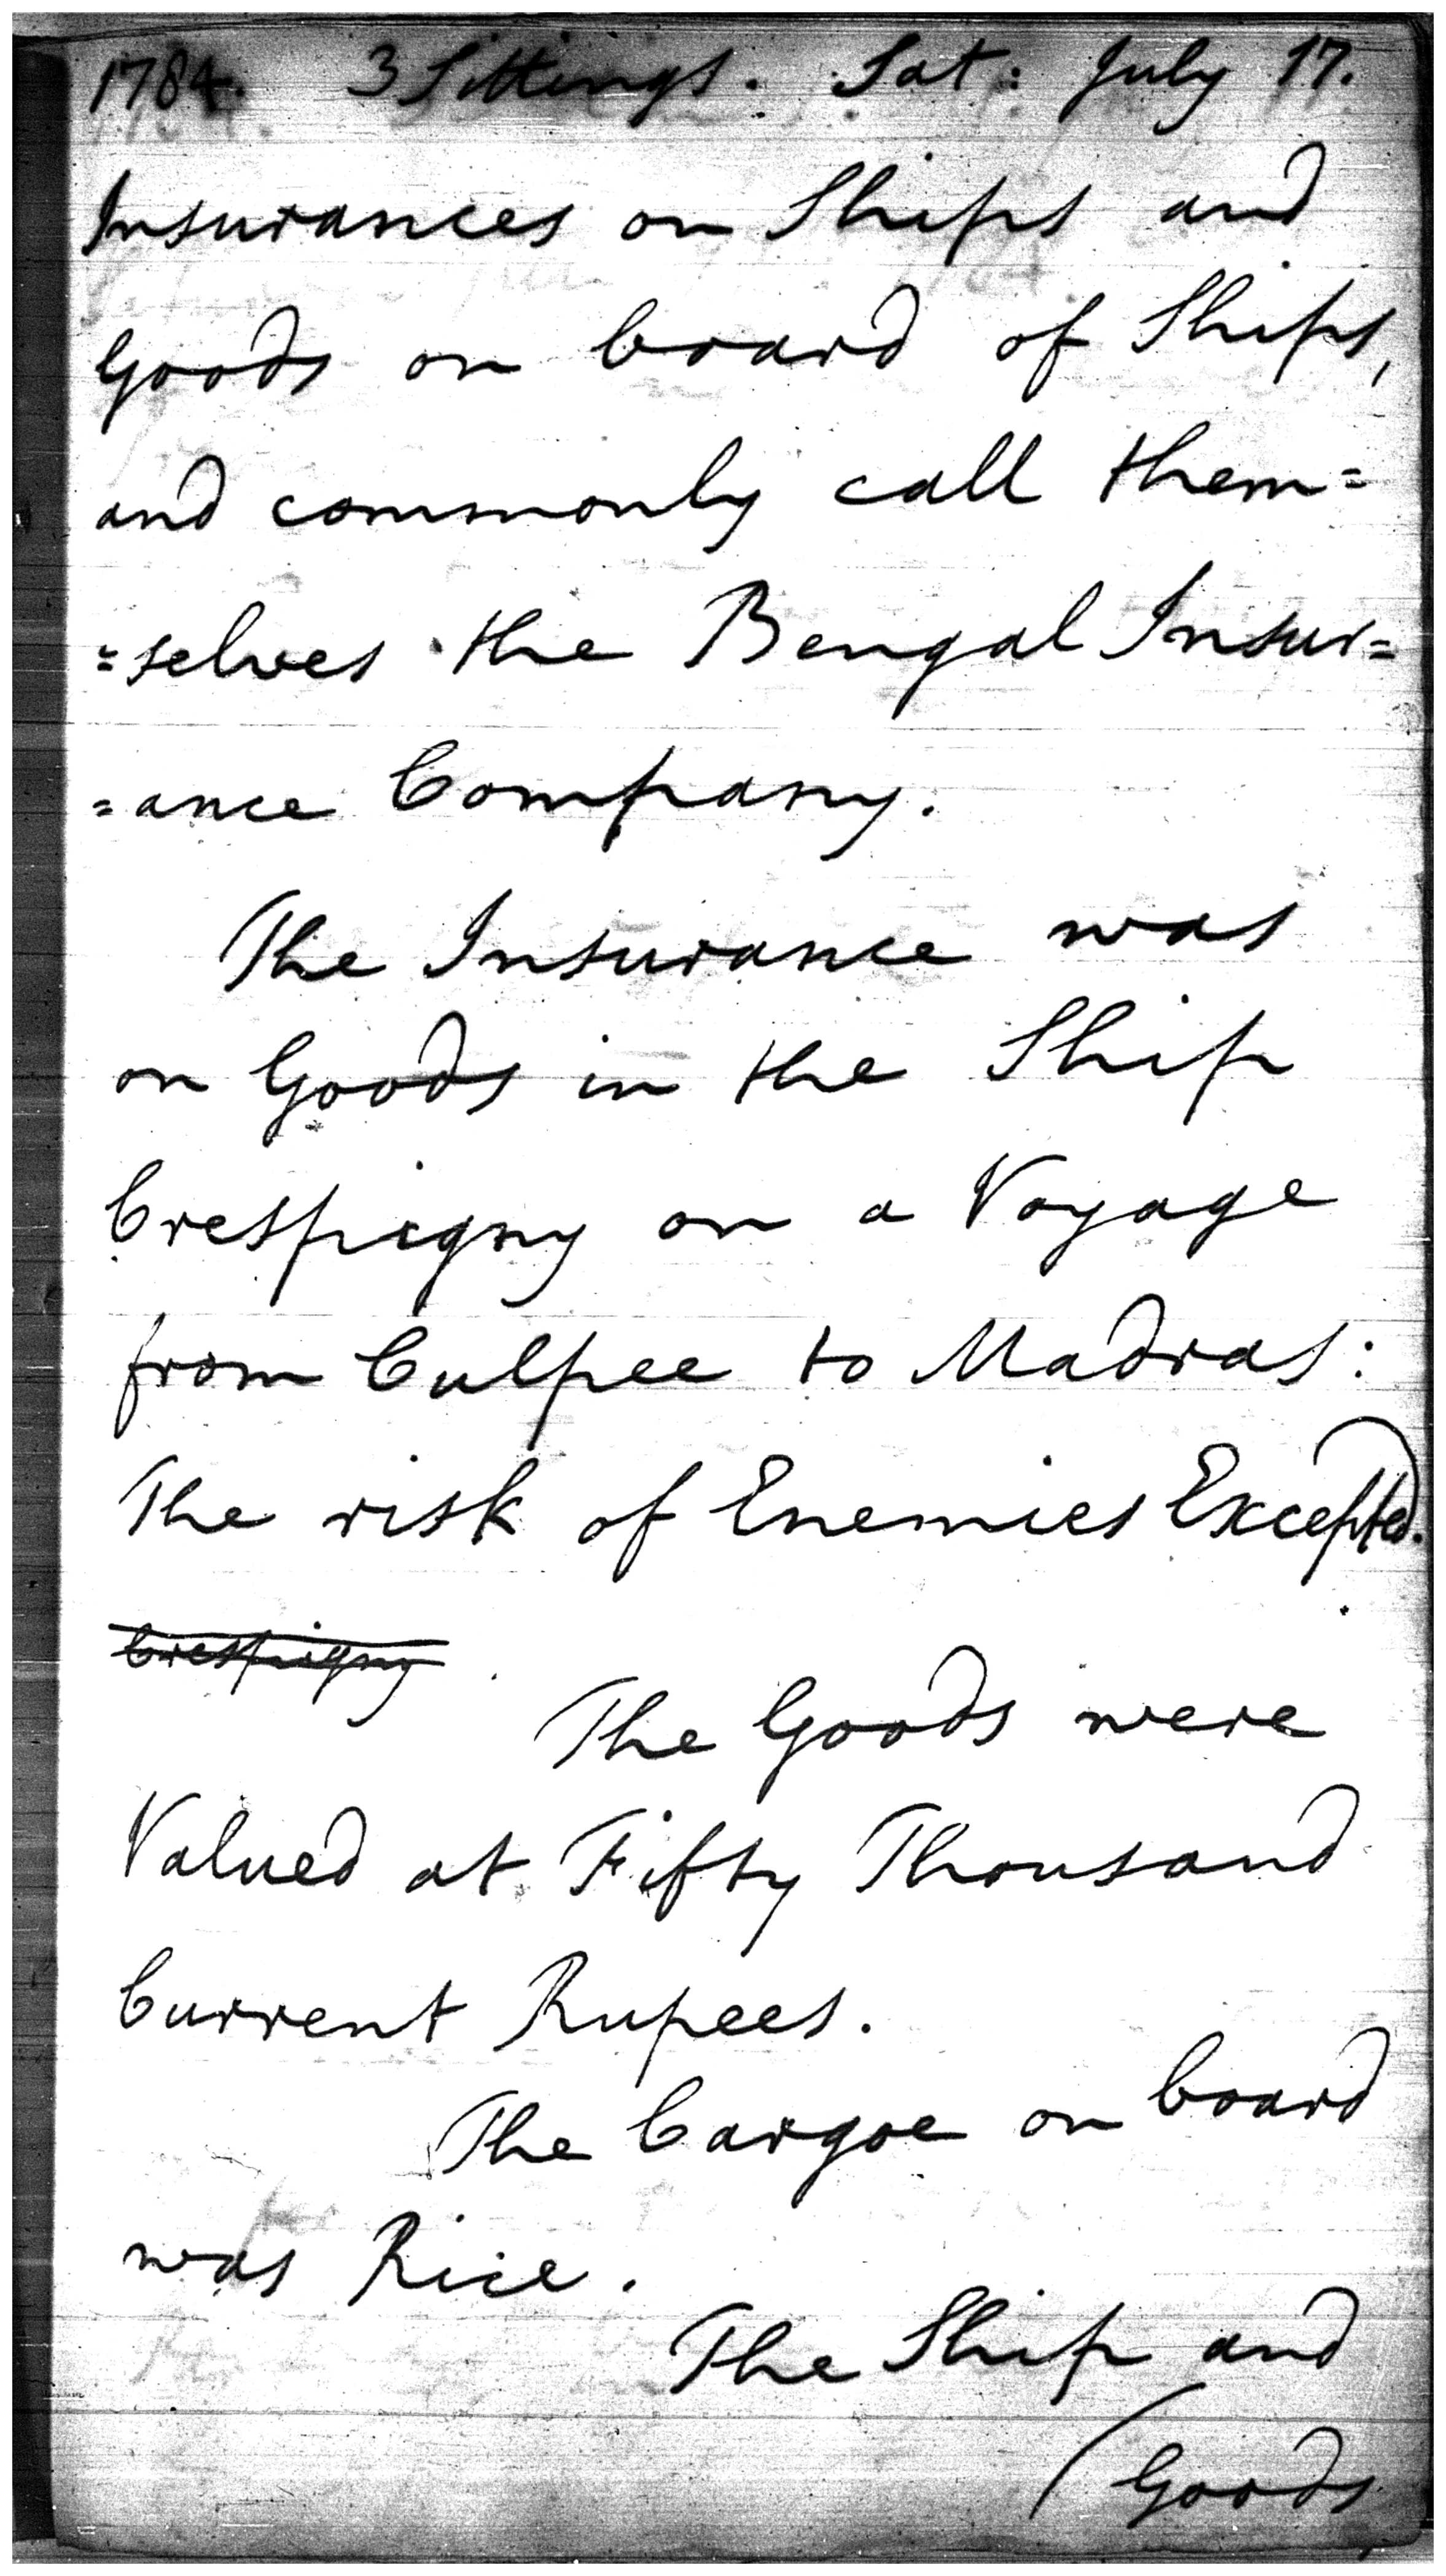 1784. 3 Sittings. Sat: July 17.
Insurances on Ships and
Goods on board of Ships,
and commonly call them=
=selves the Bengal Insur=
=ance Company.
The Insurance was
on Goods in the Ship
Crespigny on a Voyage
from Culpee to Madras:
The risk of Enemies Excepted.
Crespigny
The Goods were
Valued at Fifty Thousand
Current Rupees.
The Cargoe on board
was Rice.
The Ship and
(Goods